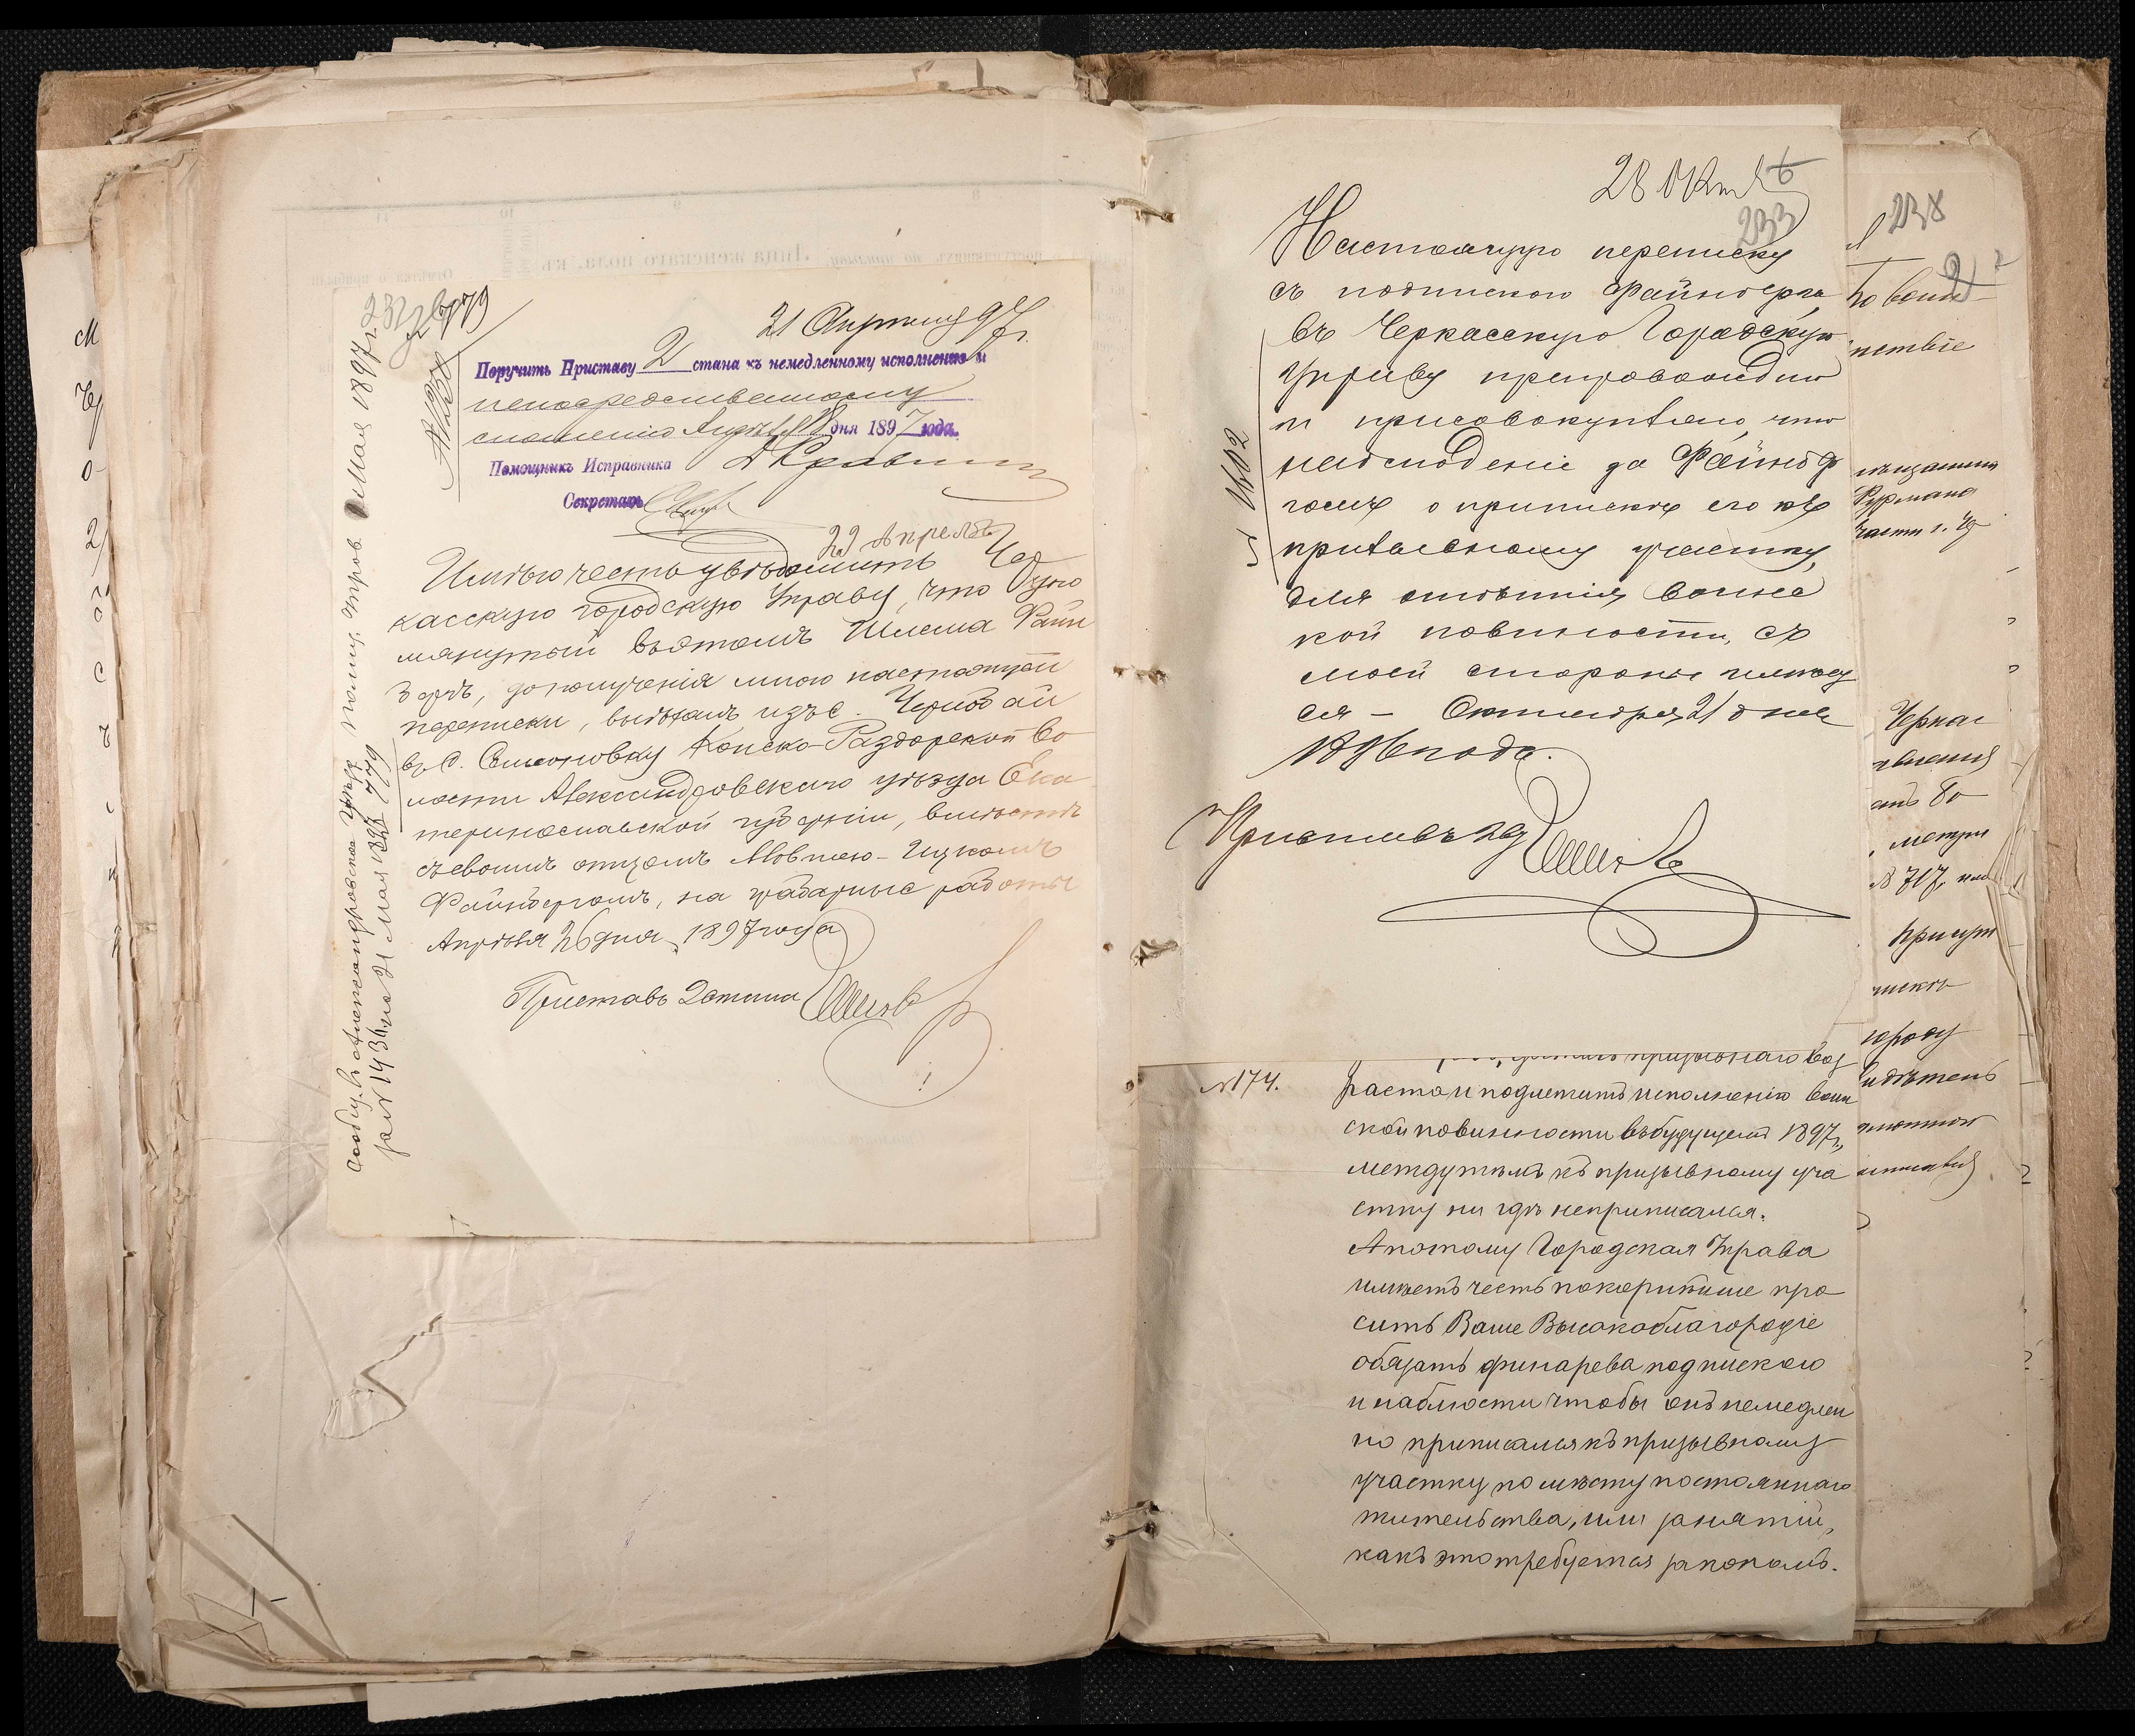 21 Апрѣля 97 г.
779
№ 1258
Поручить Приставу 2 стана къ немедленному исполненію и
непосредственному
сношенію Апрѣля 18 дня 1897 года.
Помощникъ Исправника
Секретарь
22 Апрѣля
Имѣю честь увѣдомить Чер
касскую городскую Управу, что упо
мянутый въ этомъ Шлема Файн
бергъ, до полученія мною настоящей
переписки, выѣхалъ изъ с.
въ с. Семеновку Конско-Раздорской во
лости Александровскаго уѣзда Ека
теринославской губерніи, вмѣстѣ
съ своимъ отцомъ Мовшею-Ицкомъ
Файнбергомъ, на грабарныя работы
Апрѣля 26 дня 1897 года
Приставъ 2 стана
сообщ. въ Александровское уѣзд. полиц. управ. Мая 1897 г.
за № 1436 на 21 Мая 1897 779
28 Окт
233
Настоящую переписку
съ подпискою Файнберга
въ Черкасскую Городскую
Управу препровождаю
и присовокупляю, что
наблюденіе за Файнбер
гомъ о припискѣ его къ
призывному участку,
для отбытія воинс
кой повинности, съ
моей стороны имѣет
ся – Октября 21 дня
1896 года.
Приставъ 2 ст
№ 174.
призывнаго воз
раста и подлежитъ исполненію воин
ской повинности въ будущемъ 1897 г.,
между тѣмъ къ призывному уча
стку ни гдѣ неприписался.
А потому Городская Управа
имѣетъ честь покорнѣйше про
сить Ваше Высокоблагородіе
обязать Финарева подпискою
и наблюсти чтобы онъ немедлен
но приписался къ призывному
участку по мѣсту постояннаго
жительства, или занятій,
какъ это требуется закономъ.
238
по воин
Фурмана
части г. Че
Черкас
метри
№ 717, или
присут
городу